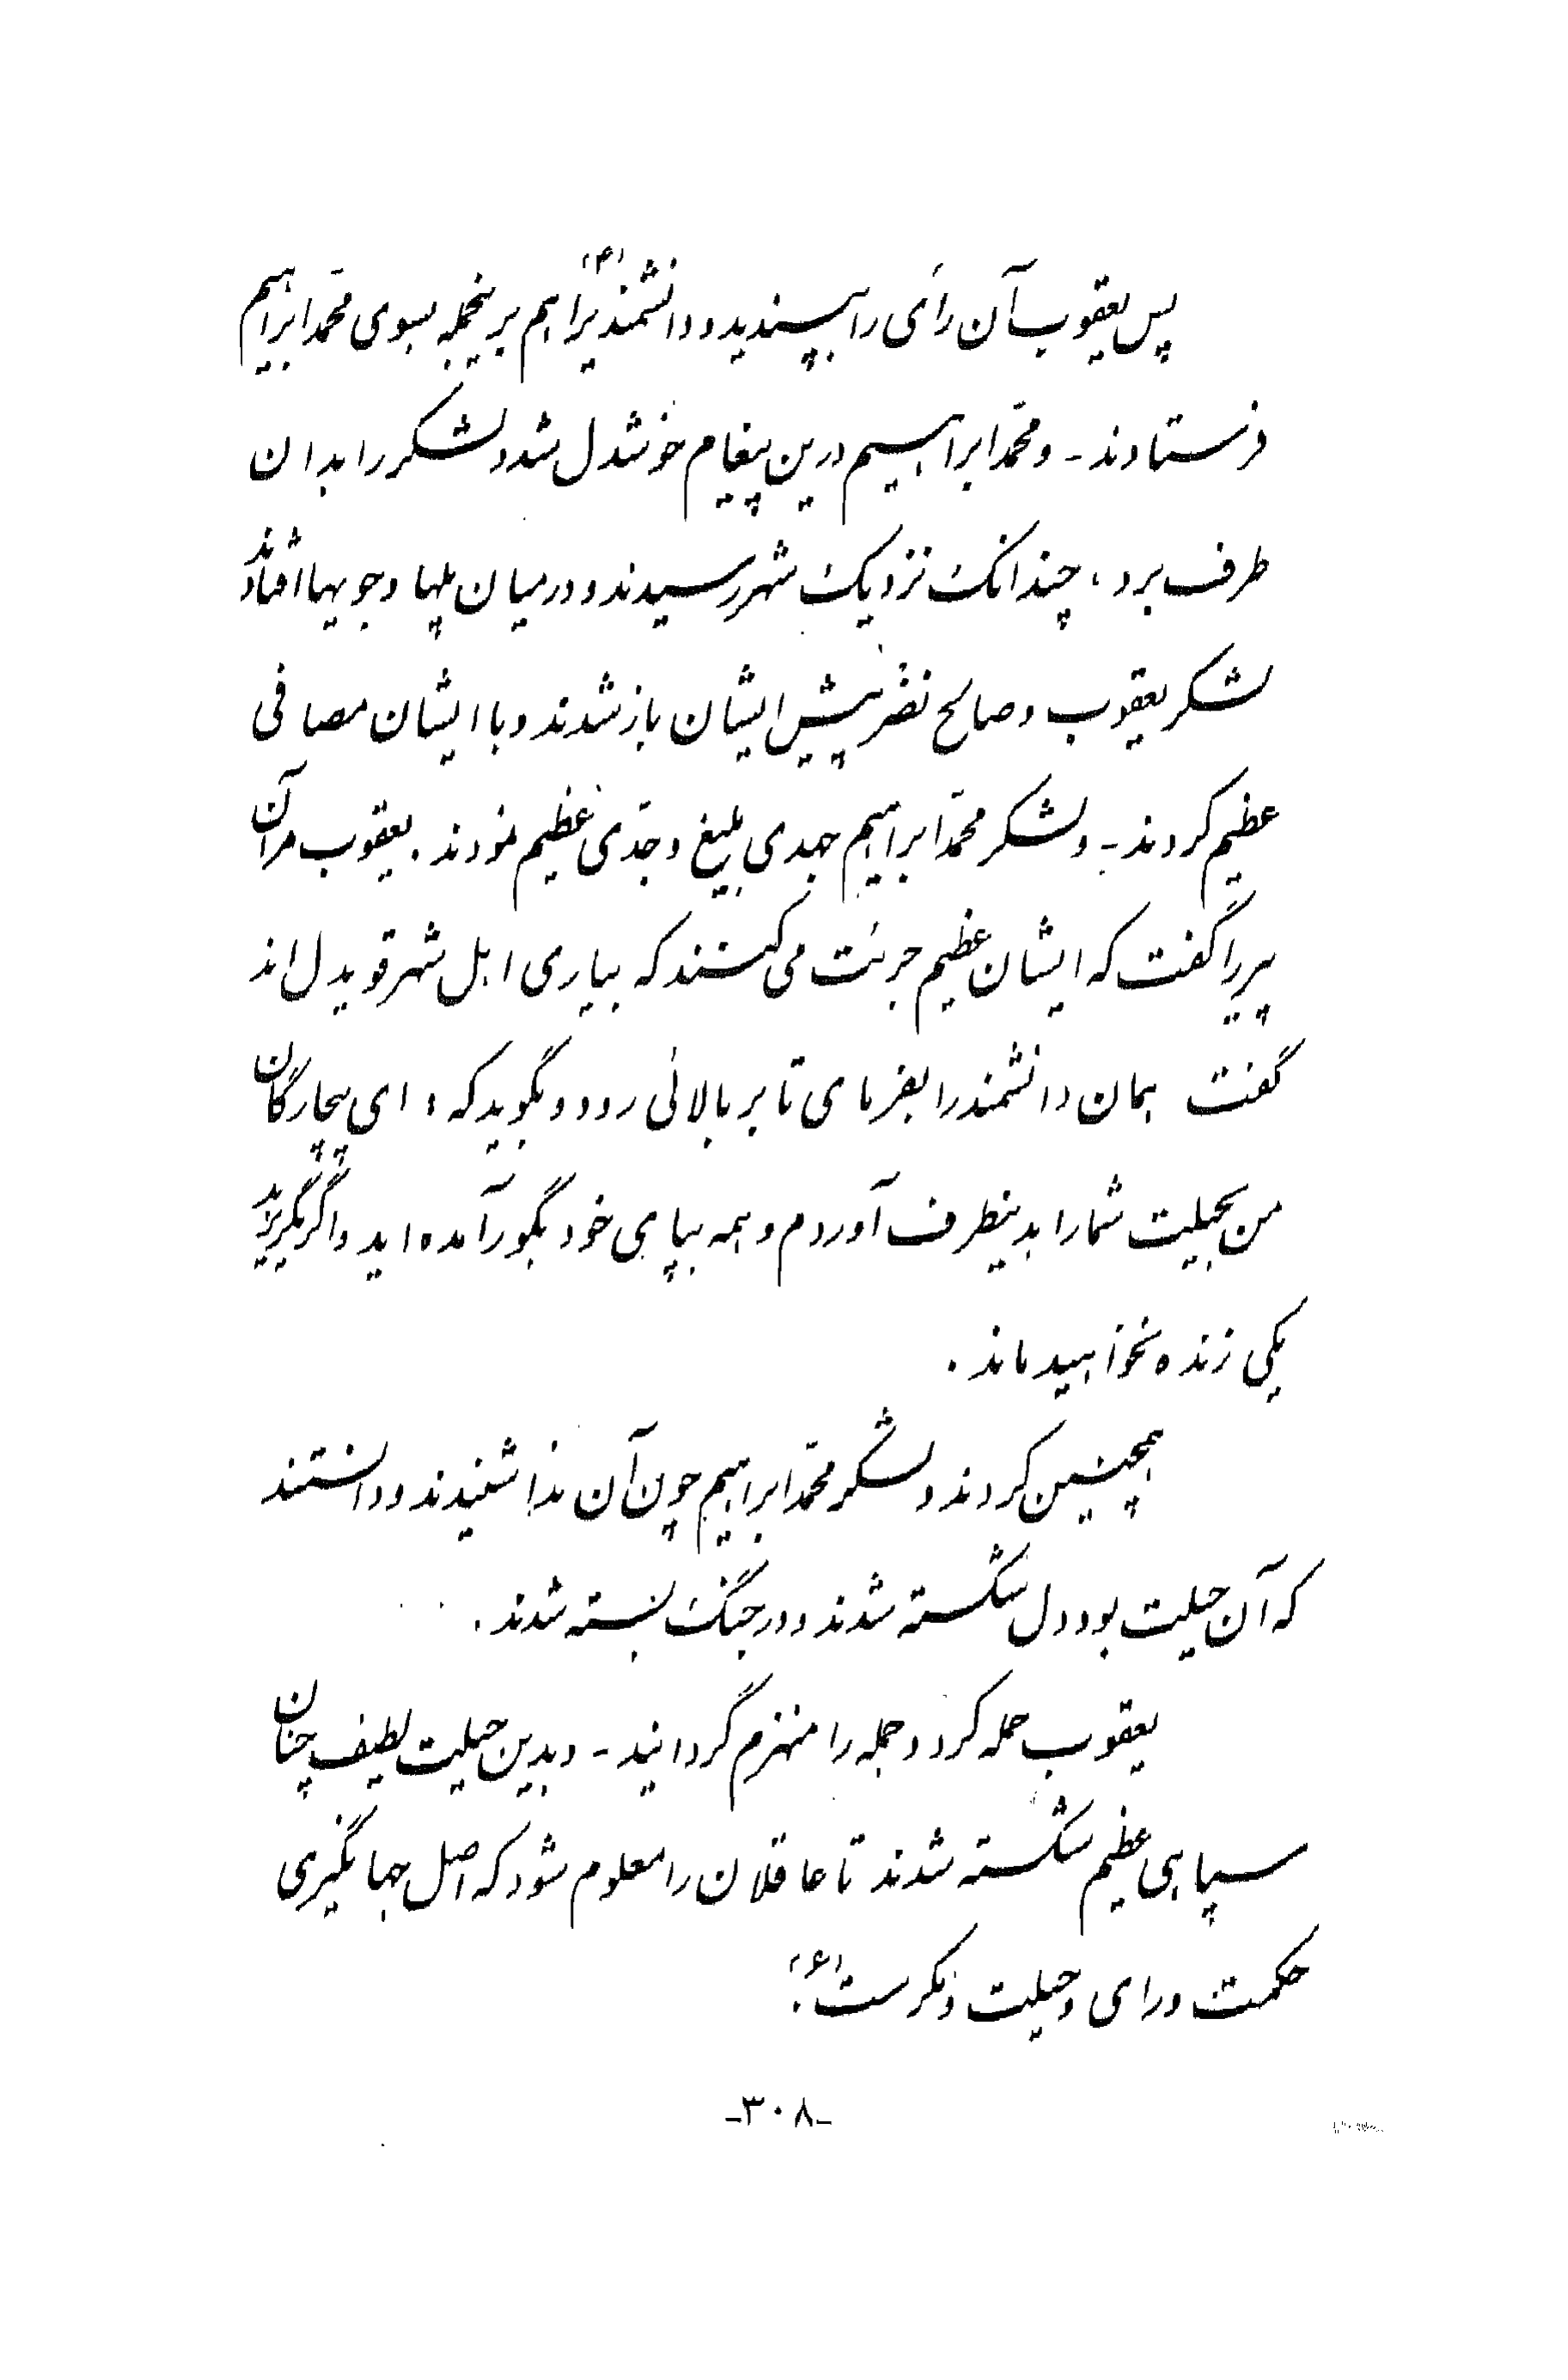 پس یعقوب آن رأی را بپسندید و دانشمند را هم برینجمله بسوی محمّد ابراهیم
فرستادند - و محمّد ابراهیم درین پیغام خوشدل شد و لشکر را بدان
طرف برد، چندانک نزدیک شهر رسیدند و در میان پلها و جویها افتادند
لشکر یعقوب و صالح نضر پیش ایشان باز شدند و با ایشان مصافی
عظیم کردند - و لشکر محمّد ابراهیم جهدی بلیغ و جدّی عظیم نمودند. یعقوب مر آن
پیر را گفت که ایشان عظیم جرئت می کنند که بیاری اهل شهر قویدل اند
گفت همان دانشمند را بفرمای تا بر بالائی رود و بگوید که: ای بیچارگان
من بحیلت شما را بدینطرف آوردم و همه بپای خود بگور آمده اید و اگر نگریزید
یکی زنده نخواهید ماند.
همچنین کردند و لشکر محمّد ابراهیم چون آن ندا شنیدند و دانستند
که آن حیلت بود دل شکسته شدند و در جنگ بسته شدند.
یعقوب حمله کرد و جمله را منهزم گردانید - و بدین حیلت لطیف چنان
سپاهی عظیم شکسته شدند تا عاقلان را معلوم شود که اصل جهانگیری
حکمت و رای و حیلت و مکر است (۶).
-۳۰۸-